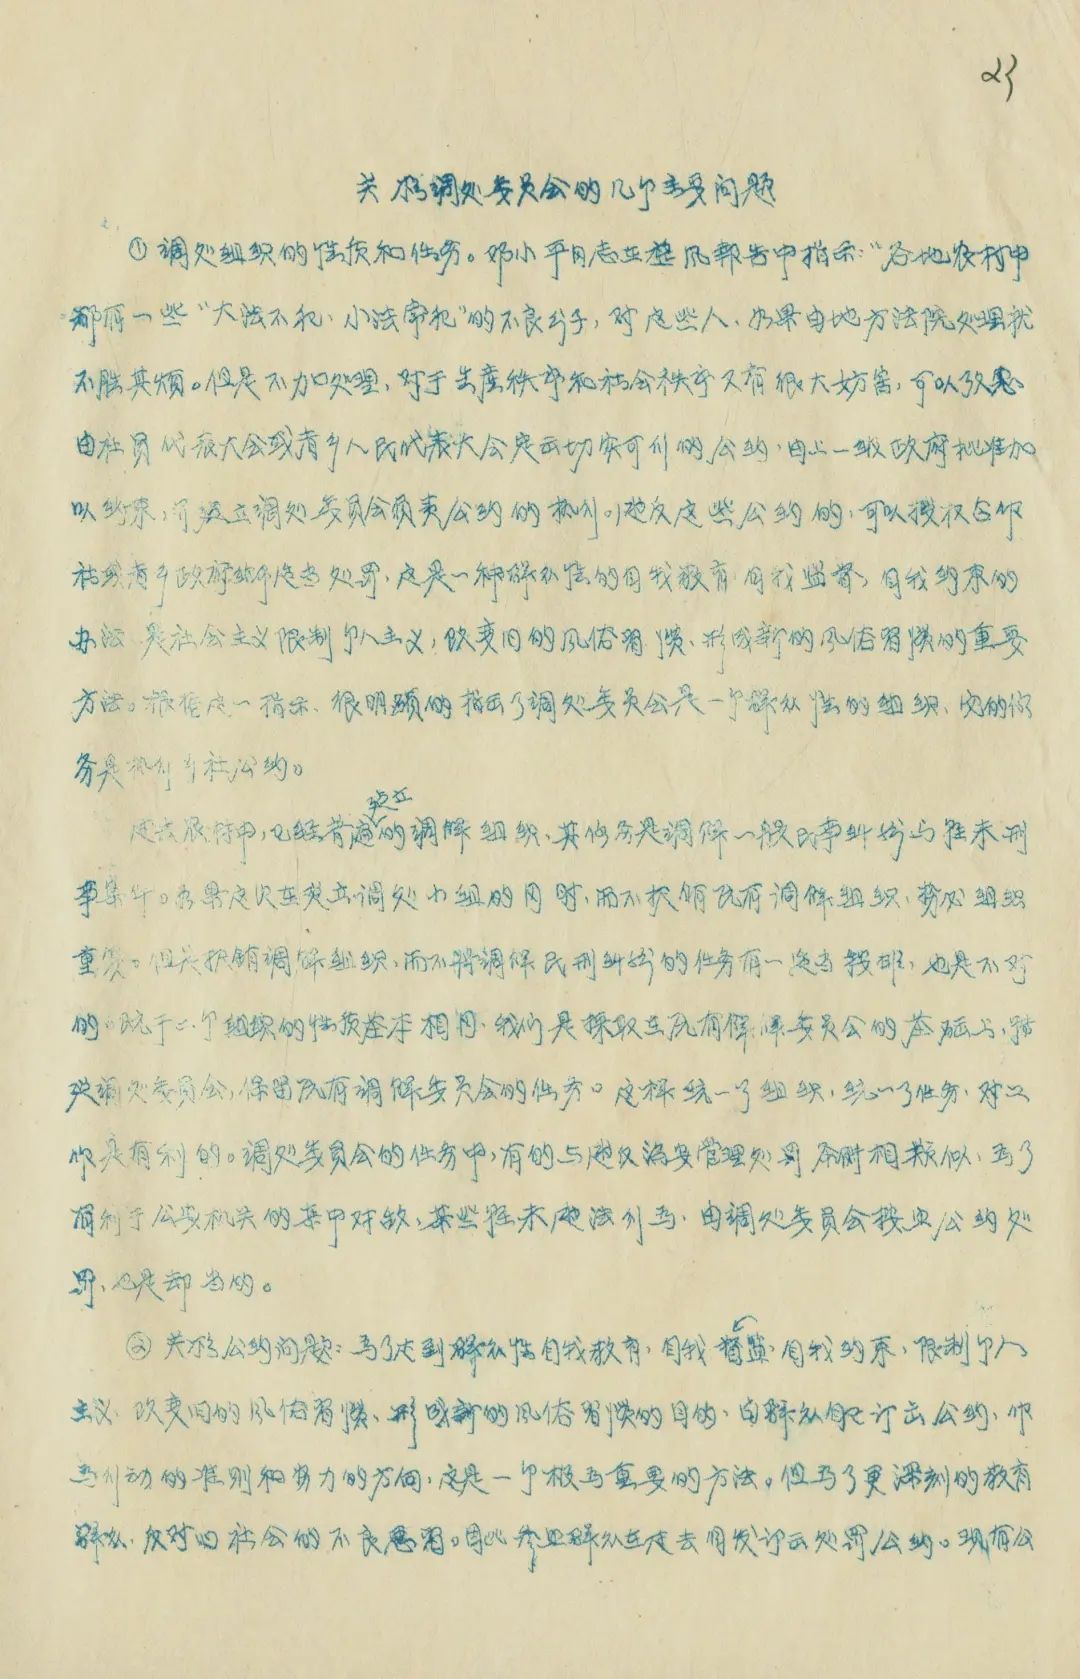 23
关于调处委员会的几个主要问题
①调处组织的性质和任务。邓小平同志在整风报告中指示:“各地农村中
都有一些“大法不犯、小法常犯”的不良分子,对这些人、如果由地方法院处理就
不胜其烦。但是不加处理,对于生产秩序和社会秩序又有很大妨害,可以考虑
由社员代表大会或者乡人民代表大会定出切实可行的公约,由上一级政府批准加
以约束,并设立调处委员会负责公约的执行。违反这些公约的,可以授权合作
社或者乡政府给予适当处罚,这是一种群众性的自我教育、自我监督,自我约束的
办法 是社会主义限制个人主义,改变旧的风俗习惯、形成新的风俗习惯的重要
方法。根据这一指示、很明显的指出了调处委员会是一个群众性的组织、它的任
务是执行乡社公约。
过去农村中,已经普遍建立的调解组织、其任务是调解一般民事纠纷与轻末刑
事案件。如果这次在建立调处小组的同时,而不撤销既有调解组织、势必组织
重复。但是撤销调解组织,而不将调解民刑纠纷的任务有一适当安排,也是不对
的。既于二个组织的性质基本相同,我们是采取在既有调解委员会的基础上,
建调处委员会,保留既有调解委员会的任务。这样统一了组织,统一了任务,对工
作是有利的。调处委员会的任务中,有的与违反治安管理处罚条例相类似,为了
有利于公安机关的集中对敌,某些轻末违法行为,由调处委员会按照公约处
罚、也是却当的。
②关于公约问题:为了达到群众性自我教育,自我督监,自我约束,限制个人
主义 改变旧的风俗习惯、形成新的风俗习惯的目的,由群众自己订出公约,作
为行动的准则和努力的方向,这是一个极为重要的方法。但为了更深刻的教育
群众,反对旧社会的不良恶习。因此参照群众在过去自发订出处罚公约。现有公